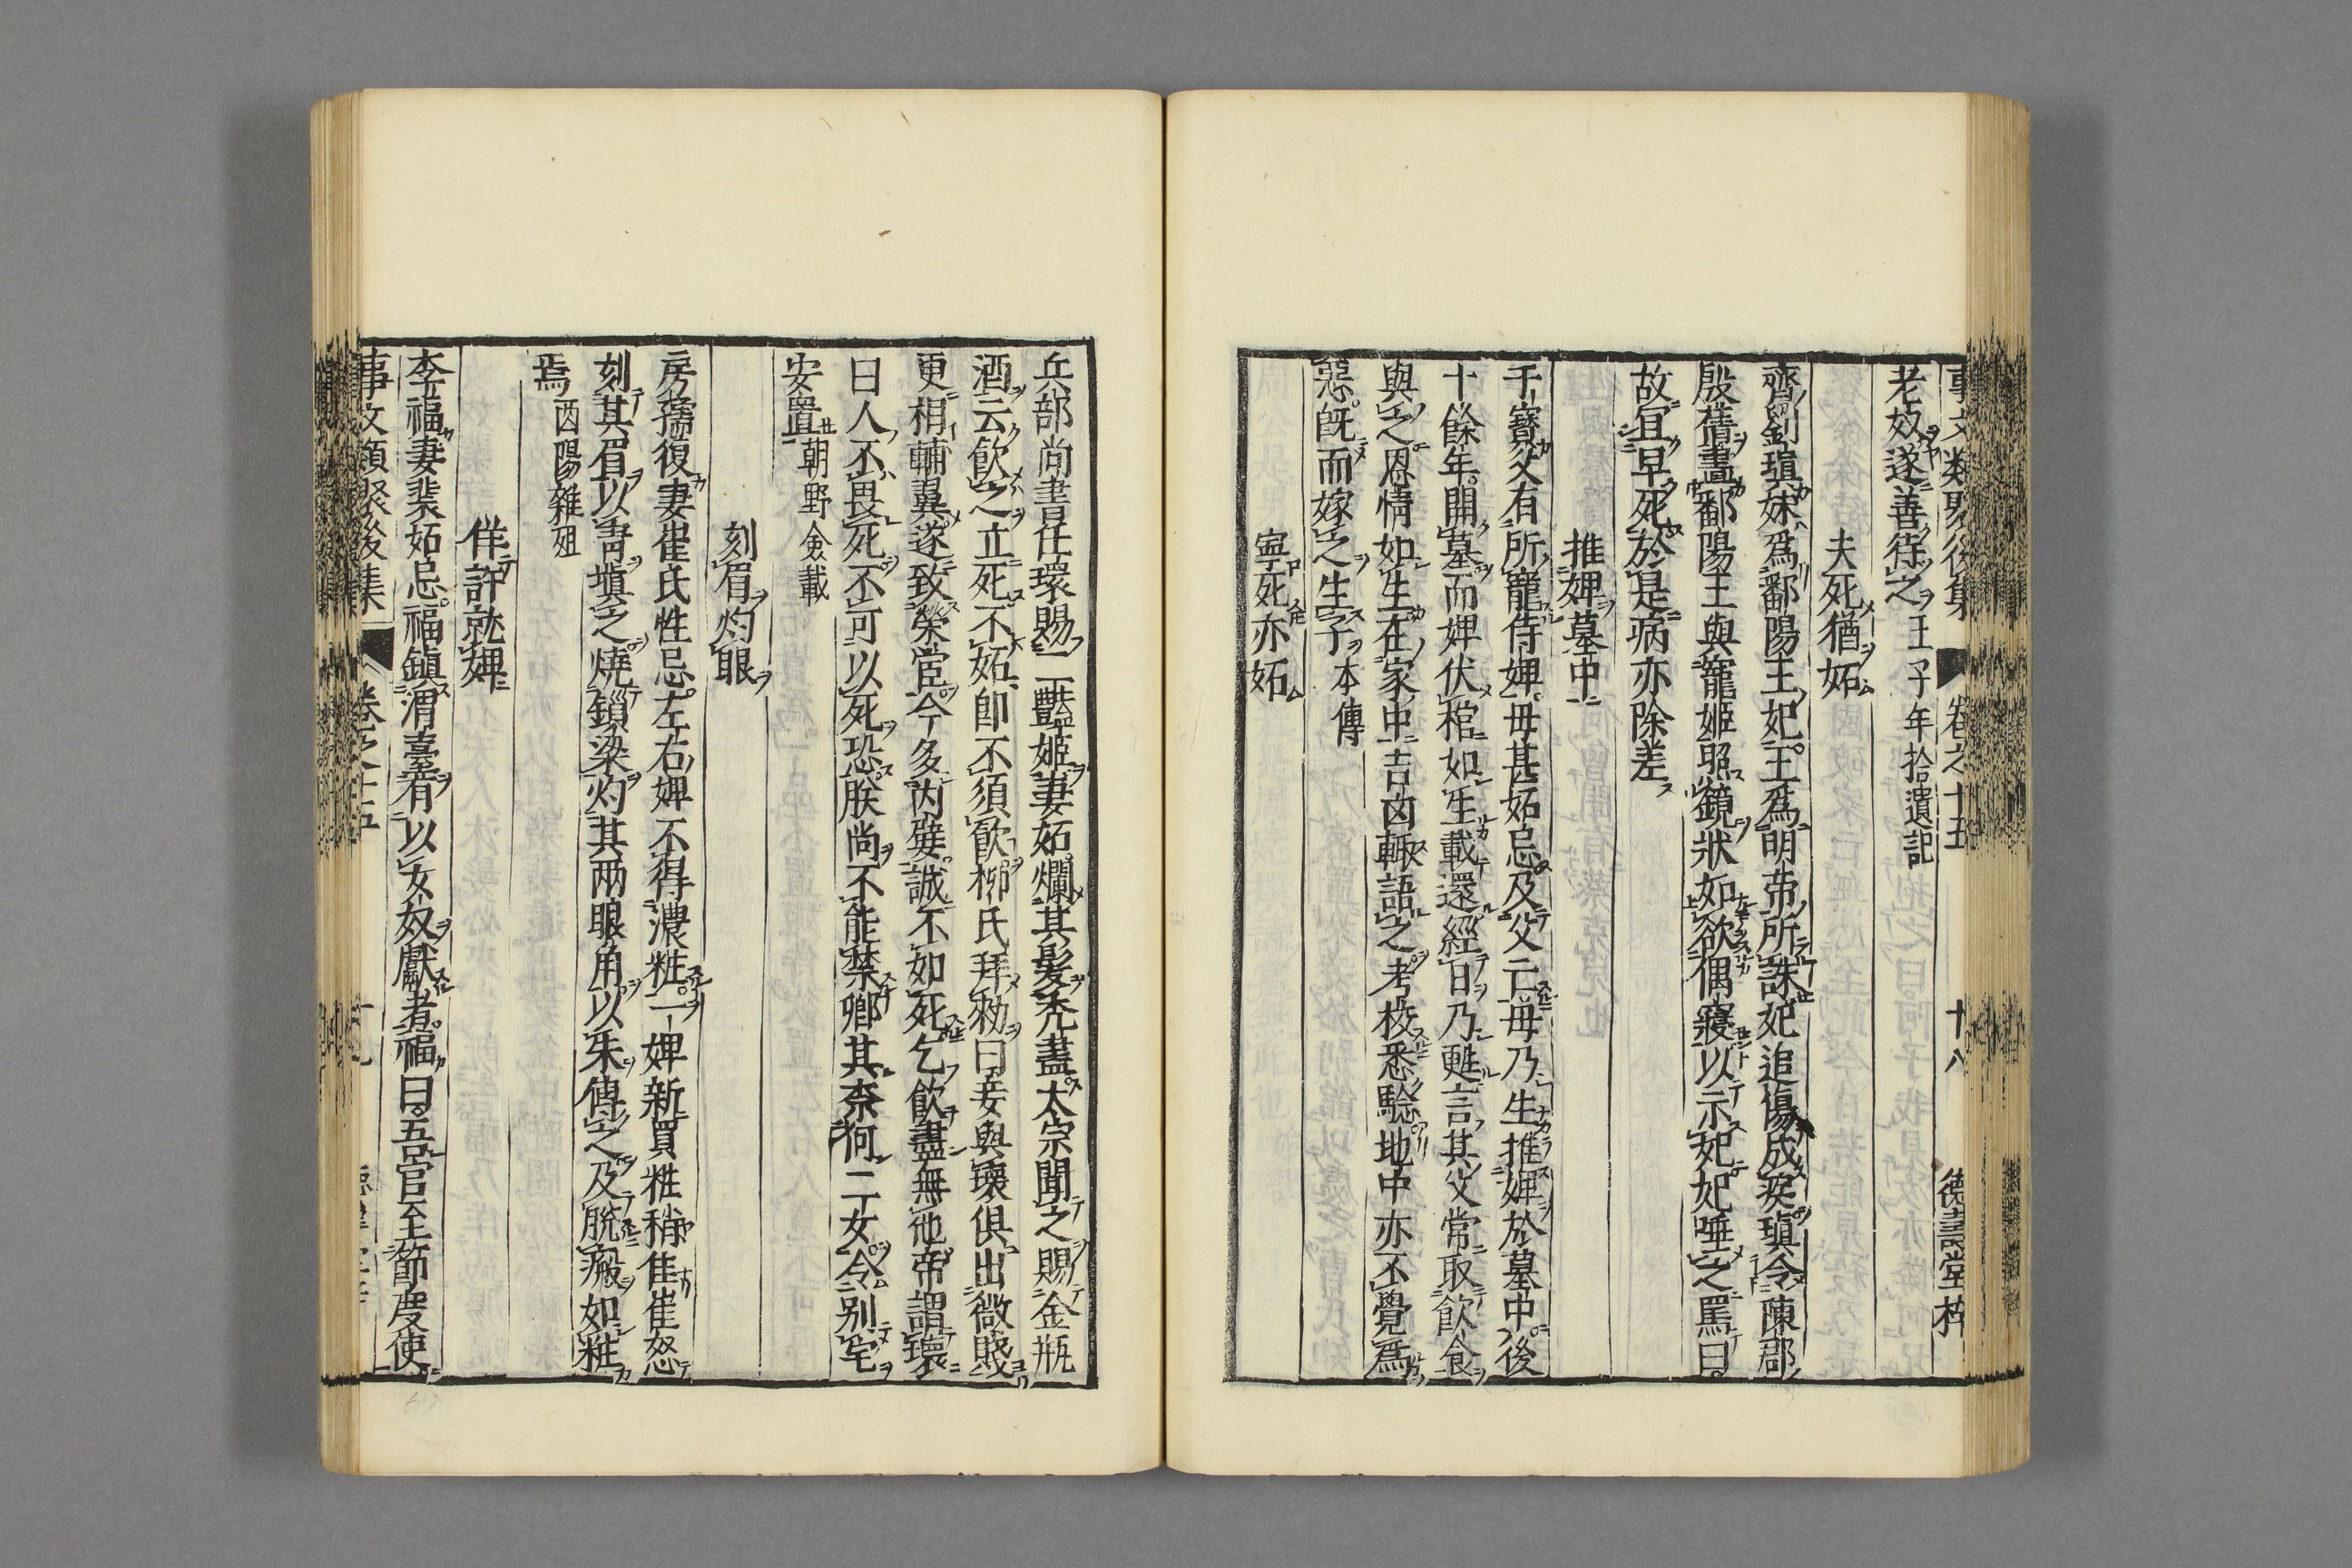 事文類聚後集 卷之十五 十八 德壽堂梓
老奴遂善待之王子年拾遺記
夫死猶妬
齊劉瑱妹為鄱陽王妃王為明帝所誅妃追傷成疾瑱令陳郡
殷蒨畫鄱陽王與寵姬照鏡狀如欲偶寢以示妃妃唾之罵曰
故宜早死於是病亦除差
推婢墓中
干寶父有所寵侍婢母甚妬忌及父亡母乃生推婢於墓中後
十餘年開墓而婢伏棺如生載還經日乃甦言其父常取飲食
與之恩情如生在家中吉凶輒語之考校悉驗地中亦不覺為
惡既而嫁之生子本傳
寧死亦妬
兵部尚書任瓌賜二豔姬妻妬爛其髮禿盡太宗聞之賜金瓶
酒云飲之立死不妬即不須飲柳氏拜勑曰妾與瓌俱出微賤
更相輔翼遂致榮官今多內嬖誠不如死乞飲盡無他帝謂瓌
曰人不畏死不可以死恐朕尚不能禁卿其柰何二女令別宅
安置朝野僉載
刻眉灼眼
房孺復妻崔氏性忌左右婢不得濃粧一婢新買粧稍佳崔怒
刻其眉以青塡之燒鎖梁灼其兩眼角以朱傅之及脫瘢如粧
焉酉陽雜俎
佯許就婢
李福妻裴妬忌福鎮滑臺有以女奴獻者福曰吾官至節度使
事文類聚後集 卷之十五 十九